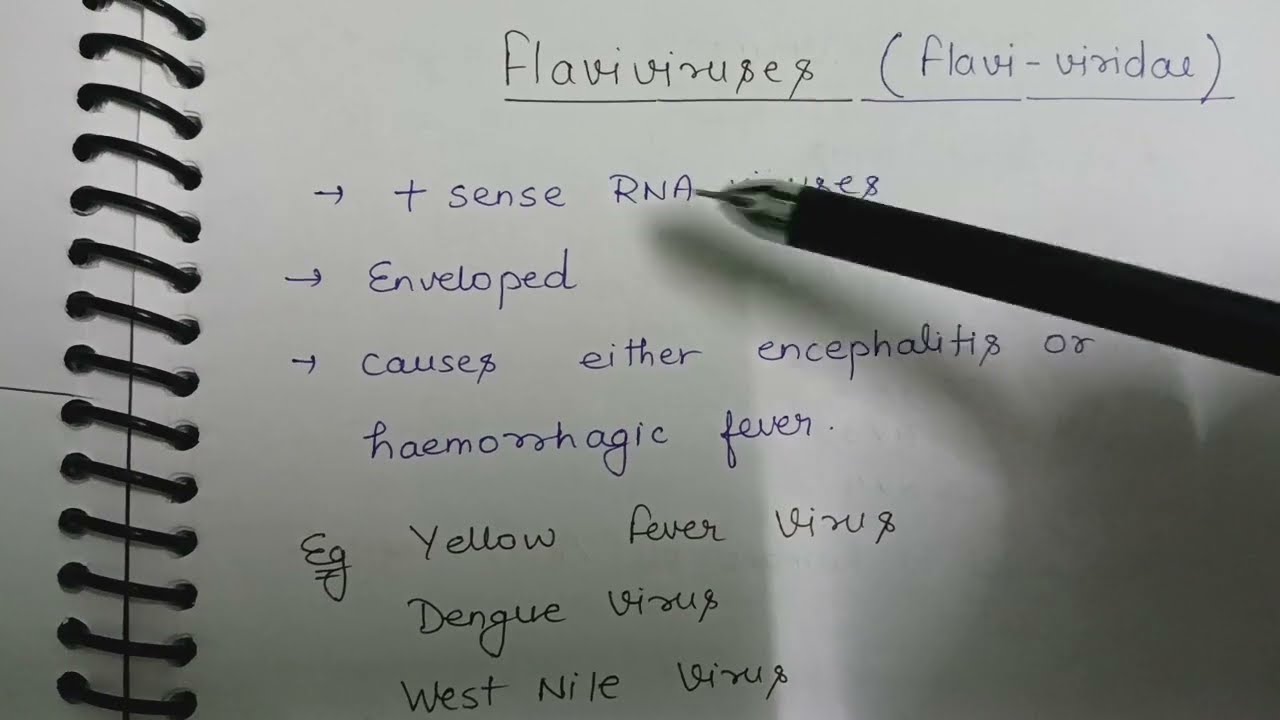 Flaviviruses (Flavi-viridae)
→ + sense RNA viruses
→ Enveloped
→ causes either encephalitis or
haemorrhagic fever.
Eg Yellow fever virus
Dengue virus
West Nile virus